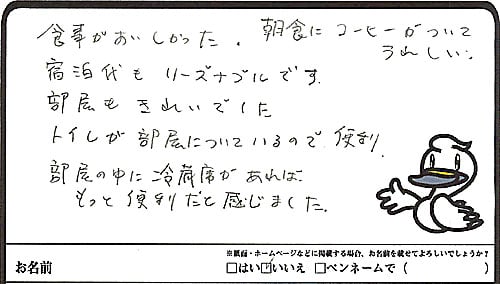 食事がおいしかった。朝食にコーヒーがついて
うれしい。
宿泊代もリーズナブルです。
部屋もきれいでした
トイレが部屋についているので便利。
部屋の中に冷蔵庫があれば
もっと便利だと感じました。
※紙面・ホームページなどに掲載する場合、お名前を載せてよろしいでしょうか?
お名前 □はい ☑いいえ □ペンネームで ( )